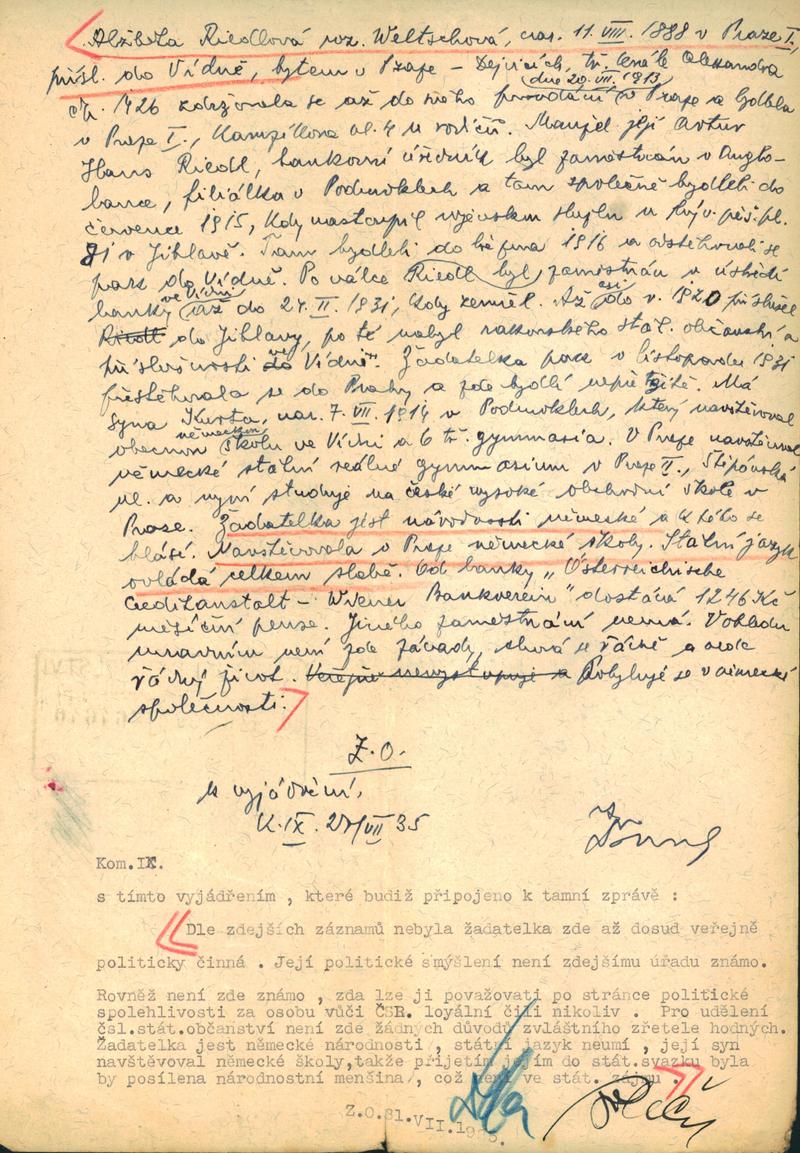 Alžběta Riedlová roz. Weltschová, nar. 11. VIII. 1888 v Praze I.,
přísl. do Vídně, bytem v Praze - Dejvicích, tř. krále Alexandra
čp. 426 zdržovala se až do svého provdání (dne 20. VII. 1913) v Praze a bydlela
v Praze I., Kaprova ul. 4 u rodičů. Manžel její Artur
Hans Riedl, bankovní úředník byl zaměstnán v Anglo-
bance, filiálka v Podmoklech a tam společně bydleli do
července 1915, kdy nastoupil vojenskou službu u pěš. pl.
81 v Jihlavě. Tam bydleli do března 1916 a odstěhovali se
pak do Vídně. Po válce Riedl byl zaměstnán v ústředí
banky ve Vídni až do 24. II. 1931, kdy zemřel. Až asi do r. 1920 příslušel
Riedl do Jihlavy, po té nabyl rakouského stát. občanství a
příslušnosti ve Vídni. Žadatelka pak v listopadu 1931
přestěhovala se do Prahy a zde bydlí nepřetržitě. Má
syna Kurta, nar. 7. VII. 1914 v Podmoklech, který navštěvoval
obecnou německou školu ve Vídni a 6 tř. gymnasia. V Praze navštěvoval
německé státní reálné gymnasium v Praze II., Štěpánská
ul. a nyní studuje na české vysoké obchodní škole v
Praze. Žadatelka jest národnosti německé a k této se
hlásí. Navštěvovala v Praze německé školy. Státní jazyk
ovládá celkem slabě. Od banky „Österreichische
Creditanstalt - Wiener Bankverein" dostává 1246 Kč
měsíční pense. Jiného zaměstnání nemá. V ohledu
mravním není zde závady, chová se řádně a vede
řádný život. Veřejně nevystupuje a Pohybuje se v německé
společnosti.
Z.O.
k vyjádření,
K.IX. VII 35
Kom.IX.
s tímto vyjádřením , které budiž připojeno k tamní zprávě :
Dle zdejších záznamů nebyla žadatelka zde až dosud veřejně
politicky činná . Její politické smýšlení není zdejšímu úřadu známo.
Rovněž není zde známo , zda lze ji považovati po stránce politické
spolehlivosti za osobu vůči ČSR. loyální čili nikoliv . Pro udělení
čsl.stát.občanství není zde žádných důvodů zvláštního zřetele hodných.
Žadatelka jest německé národnosti , státní jazyk neumí , její syn
navštěvoval německé školy,takže přijetím jejím do stát.svazku byla
by posílena národnostní menšina , což není ve stát. zájmu .
Z.O.31.VII.1935.